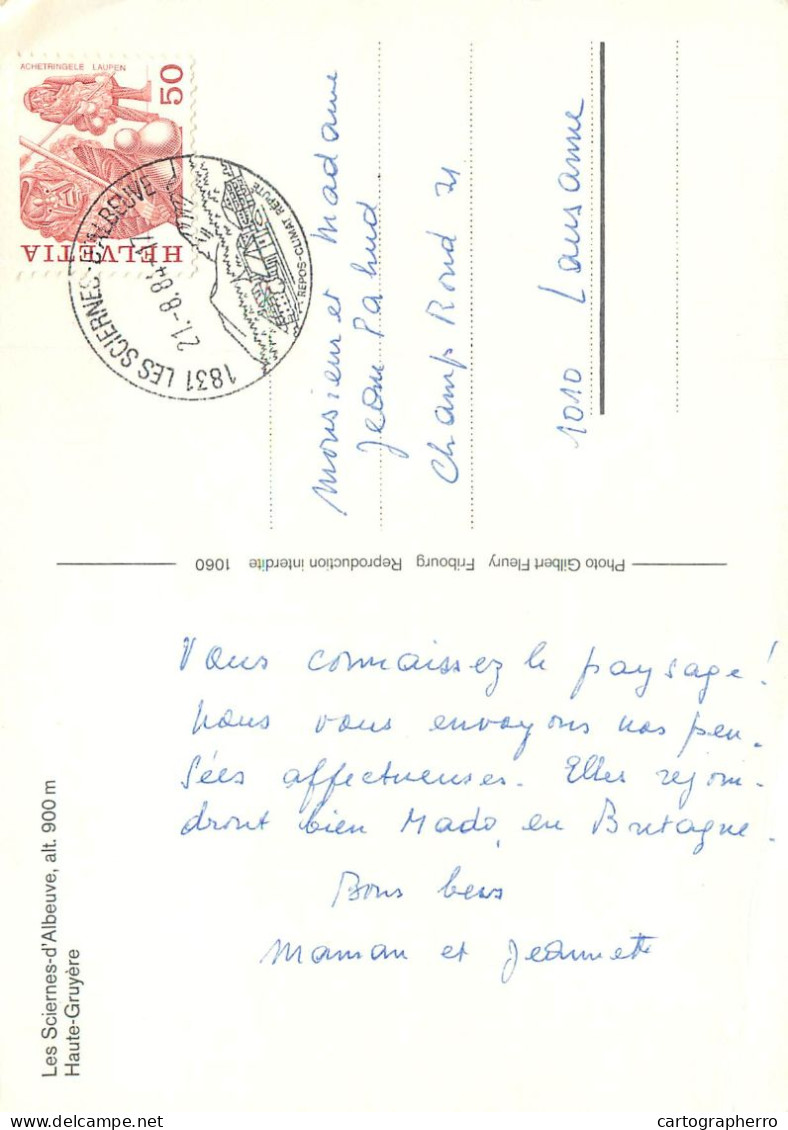 ACHETRINGELE LAUPEN
50
HELVETIA
1831 LES SCIERNES-D'ALBEUVE
21.-8.84-17
REPOS-CLIMAT RÉPUTÉ
Monsieur et Madame
Jean Pahud
Champ Rond 71
1010 Lausanne
Photo Gilbert Fleury Fribourg Reproduction interdite 1060
Vous connaissez le paysage!
Nous vous envoyons nos pen-
sées affectueuses. Elles rejoin-
dront bien Mado, en Bretagne.
Bons becs
Maman et Jeannette
Les Sciernes-d'Albeuve, alt. 900 m
Haute-Gruyère
delcampe.net
cartographerro